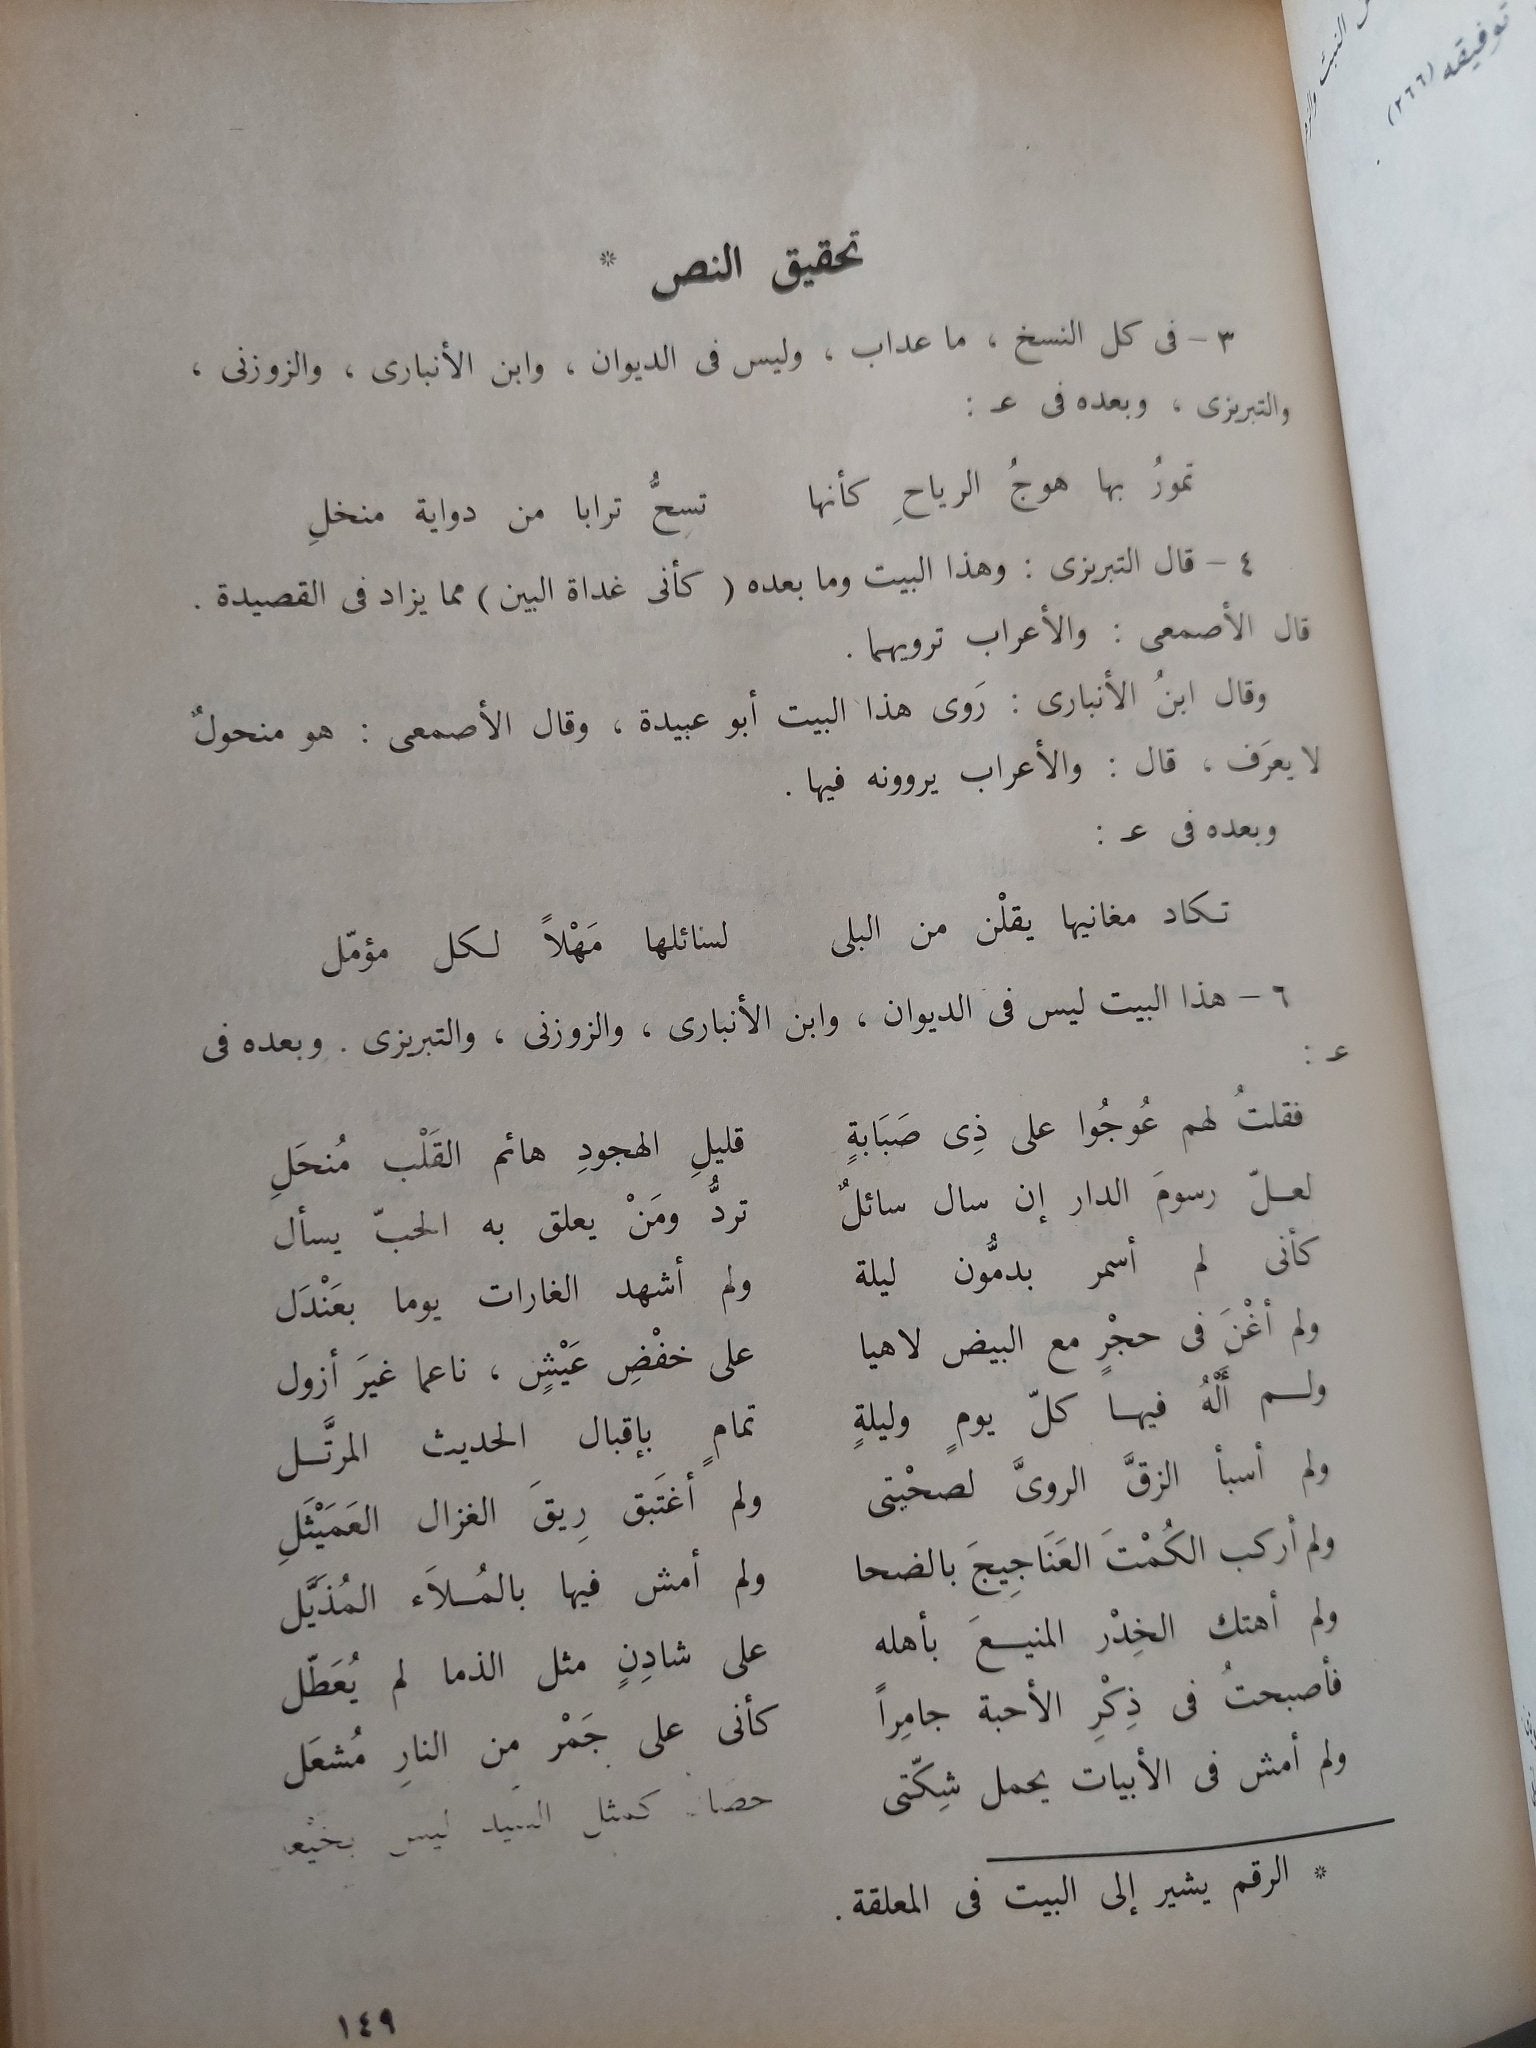 تحقيق النص *
٣ – فى كل النسخ ، ما عداب ، وليس فى الديوان ، وابن الأنبارى ، والزوزنى ،
والتبريزى ، وبعده فى عـ :
تمورُ بها هوجُ الرياحِ كأنها تسِحُّ ترابا من دواية منخلِ
٤ – قال التبريزى : وهذا البيت وما بعده ( كأنى غداة البين ) مما يزاد فى القصيدة .
قال الأصمعى : والأعراب ترويهما .
وقال ابنُ الأنبارى : رَوى هذا البيت أبو عبيدة ، وقال الأصمعى : هو منحولٌ
لا يعرَف ، قال : والأعراب يروونه فيها .
وبعده فى عـ :
تكاد مغانيها يقلْن من البلى لسائلها مَهْلاً لكل مؤمّل
٦ – هذا البيت ليس فى الديوان ، وابن الأنبارى ، والزوزنى ، والتبريزى . وبعده فى
عـ :
فقلتُ لهم عُوجُوا على ذِى صَبَابةٍ قليلِ الهجودِ هائم القَلْب مُنحَلِ
لعلّ رسومَ الدار إن سال سائلٌ تردُّ ومَنْ يعلق به الحبّ يسأل
كأنى لم أسمر بدمُّون ليلة ولم أشهد الغارات يوما بعَنْدَل
ولم أغْنَ فى حجْرٍ مع البيض لاهيا على خفْضِ عَيْشٍ ، ناعما غيرَ أزول
ولم أَلْهُ فيها كلّ يومٍ وليلةٍ تمامٍ بإقبال الحديث المرتَّل
ولم أسبأ الزقَّ الروىَّ لصحْبتى ولم أغتَبق رِيقَ الغزال العَمَيْثَلِ
ولم أركب الكُمْتَ العَنَاجِيجَ بالضحا ولم أمش فيها بالمُلاَء المُذَيَّل
ولم أهتك الخِدْر المنيعَ بأهله على شادِنٍ مثل الذما لم يُعَطّل
فأصبحتُ فى ذِكْرِ الأحبة جامِراً كأنى على جَمْر من النارِ مُشعَل
ولم أمش فى الأبيات يحمل شِكّتى كمثل السيد ليس
* الرقم يشير إلى البيت فى المعلقة .
١٤٩
توفيقه (٢٦٦)